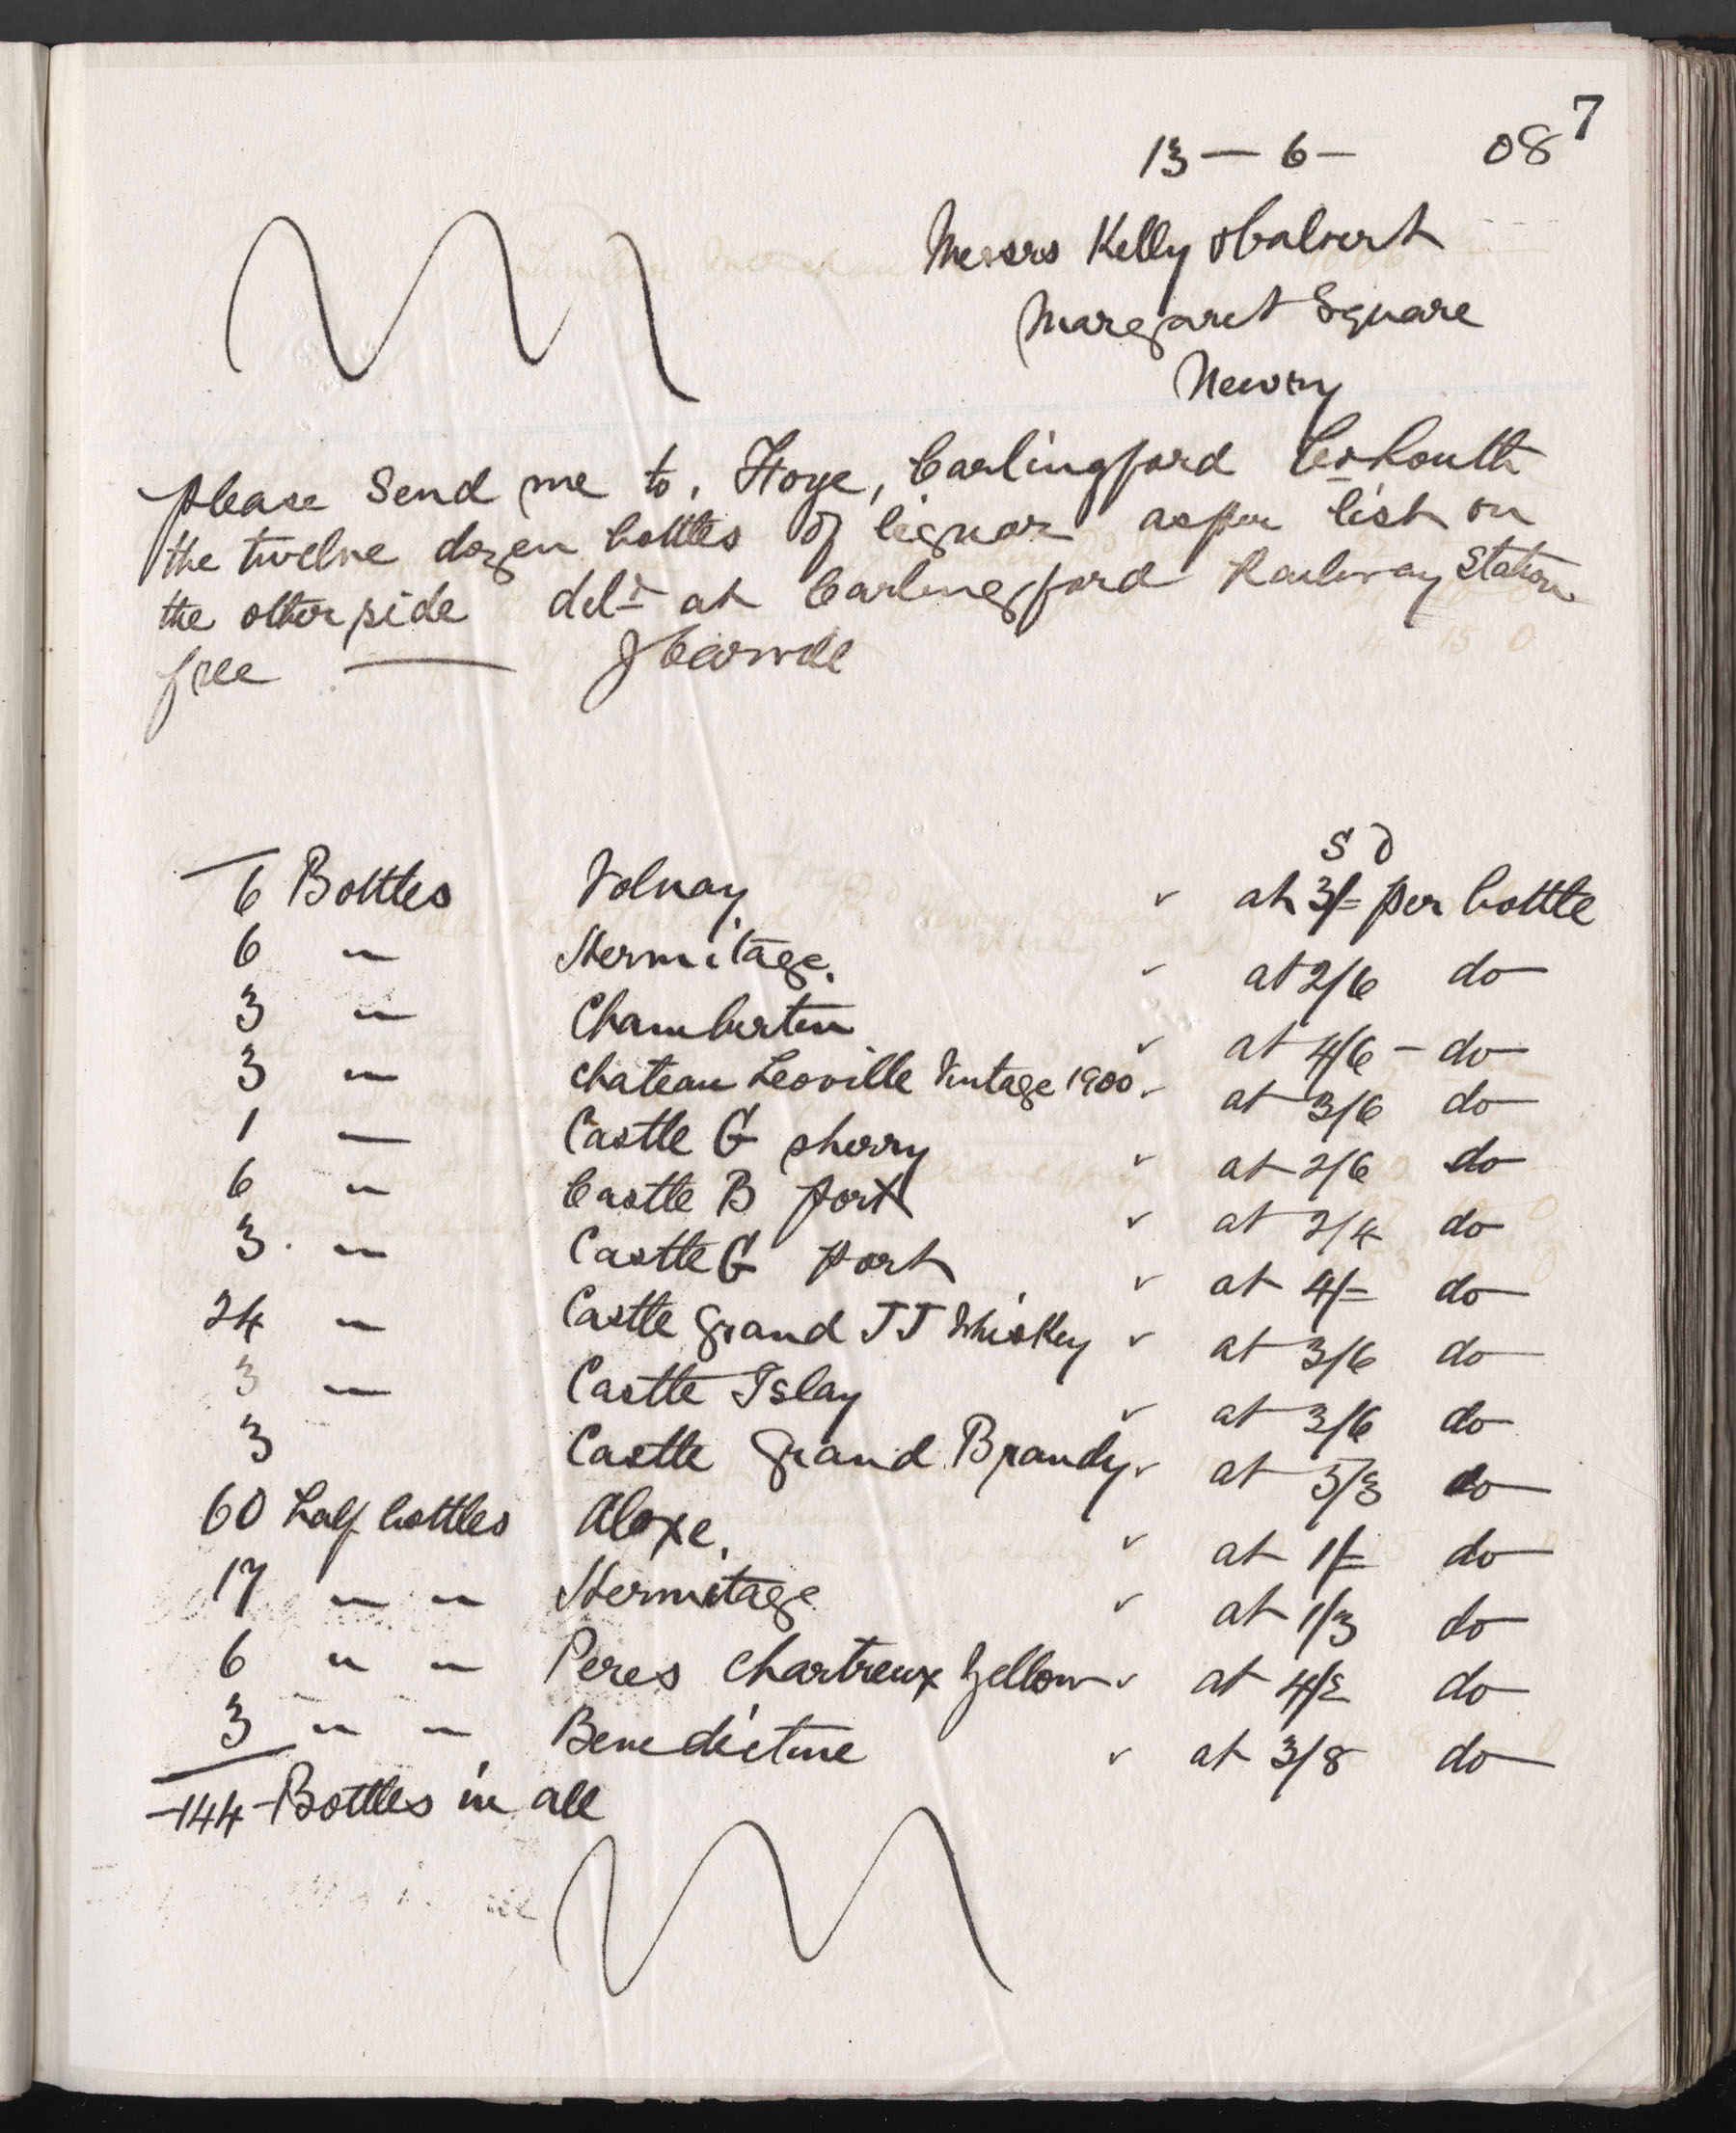 7
13 — 6 — 08
Messrs Kelly & Calvert
Margaret Square
Newry
please Send me to, Hoye, Carlingford Co Louth
the twelve dozen bottles of liquor as per list on
the other side deld at Carlingford Railway Station
free —
S D
6 Bottles Volnay. at 3/= per bottle
6 " Hermitage. at 2/6 do
3 " Chambertin at 4/6 - do
3 " Chateau Leoville Vintage 1900 at 3/6 do
1 — Castle G sherry at 2/6 do
6 " Castle B port at 2/4 do
3 " Castle G port at 4/= do
24 " Castle Grand JJ Whiskey at 3/6 do
3 " Castle Islay at 3/6 do
3 Castle Grand Brandy at 5/3 do
60 half bottles Aloxe. at 1/= do
17 " " Hermitage at 1/3 do
6 " " Peres Chartreux Yellow at do
3 " " Benedictine at 3/8 do
-144-Bottles in all